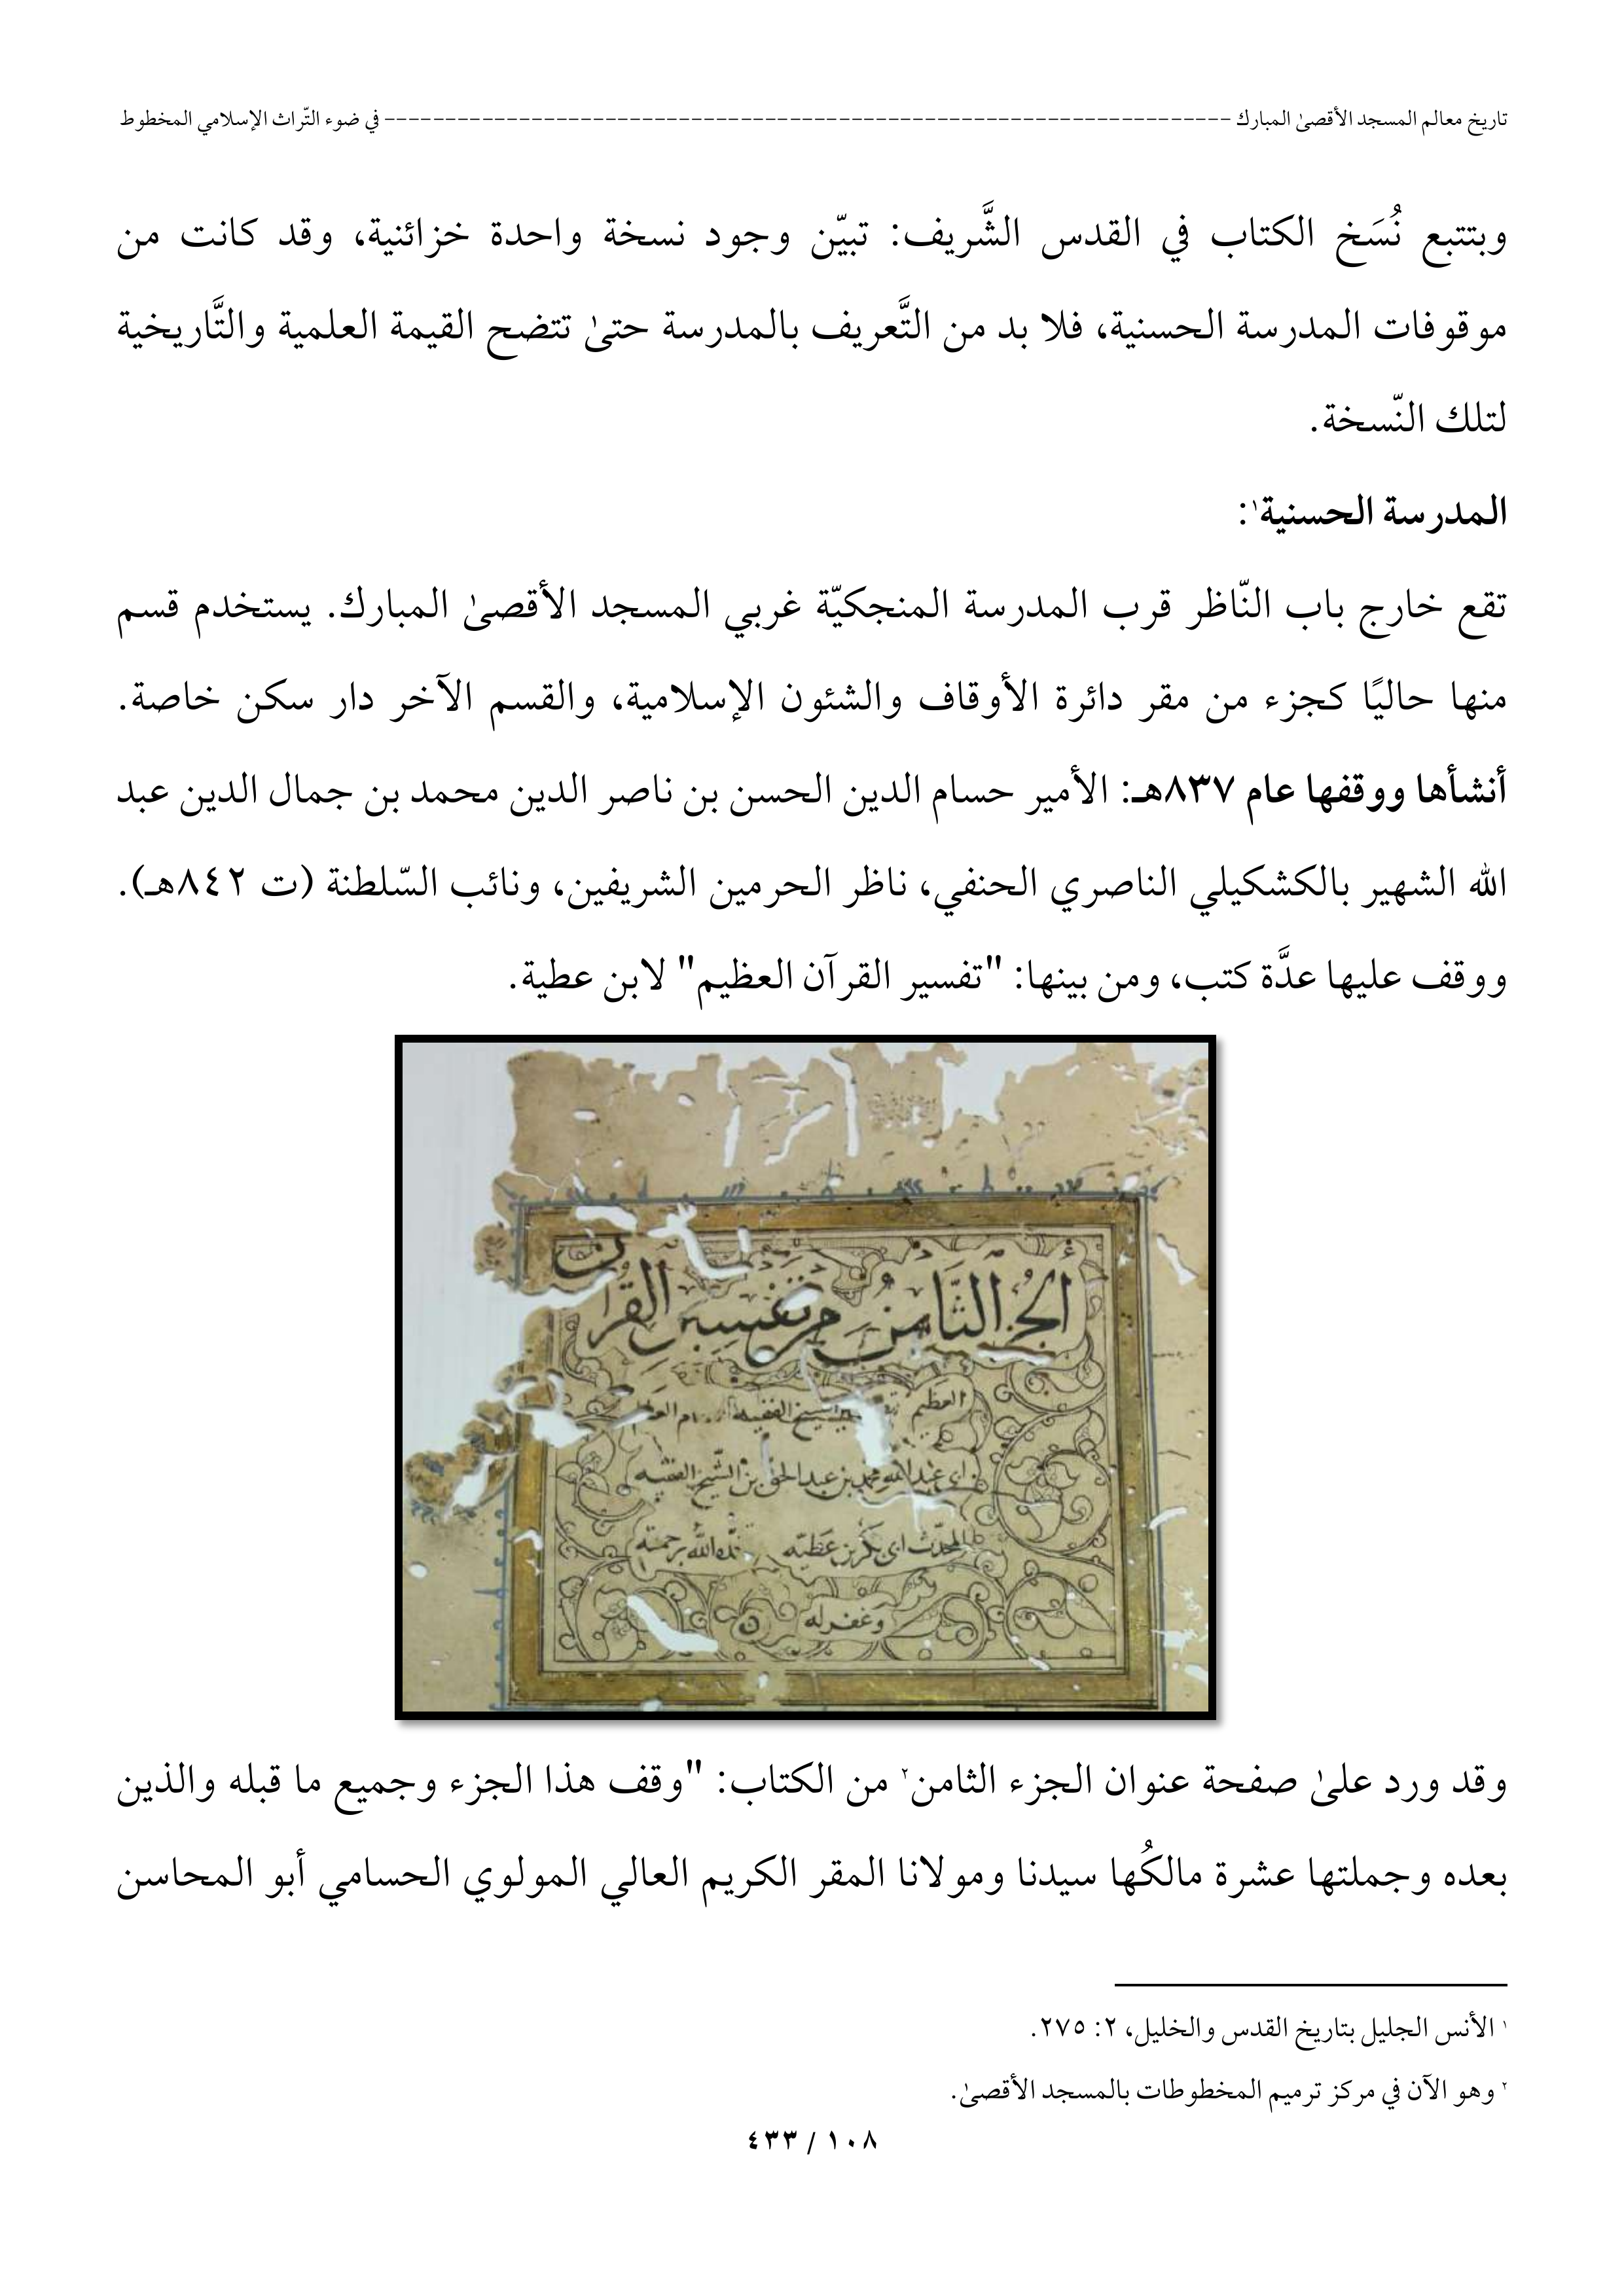 تاريخ معالم المسجد الأقصىٰ المبارك ---------------------------------------------------------------------- في ضوء التّراث الإسلامي المخطوط
وبتتبع نُسَخ الكتاب في القدس الشَّريف: تبيّن وجود نسخة واحدة خزائنية، وقد كانت من
موقوفات المدرسة الحسنية، فلا بد من التَّعريف بالمدرسة حتىٰ تتضح القيمة العلمية والتَّاريخية
لتلك النّسخة.
المدرسة الحسنية١:
تقع خارج باب النّاظر قرب المدرسة المنجكيّة غربي المسجد الأقصىٰ المبارك. يستخدم قسم
منها حاليًا كجزء من مقر دائرة الأوقاف والشئون الإسلامية، والقسم الآخر دار سكن خاصة.
أنشأها ووقفها عام ٨٣٧هـ: الأمير حسام الدين الحسن بن ناصر الدين محمد بن جمال الدين عبد
الله الشهير بالكشكيلي الناصري الحنفي، ناظر الحرمين الشريفين، ونائب السّلطنة (ت ٨٤٢هـ).
ووقف عليها عدَّة كتب، ومن بينها: "تفسير القرآن العظيم" لابن عطية.
الجزء الثَّامن من تفسير القرآن
العظيم الشيخ الفقيه
ابي عبد الله محمد بن عبد الحق بن الشيخ الفقيه
المحدّث ابي بكر بن عطيّه الله برحمته
وغفر له
وقد ورد علىٰ صفحة عنوان الجزء الثامن٢ من الكتاب: "وقف هذا الجزء وجميع ما قبله والذين
بعده وجملتها عشرة مالكُها سيدنا ومولانا المقر الكريم العالي المولوي الحسامي أبو المحاسن
١ الأنس الجليل بتاريخ القدس والخليل، ٢: ٢٧٥.
٢ وهو الآن في مركز ترميم المخطوطات بالمسجد الأقصىٰ.
١٠٨ / ٤٣٣